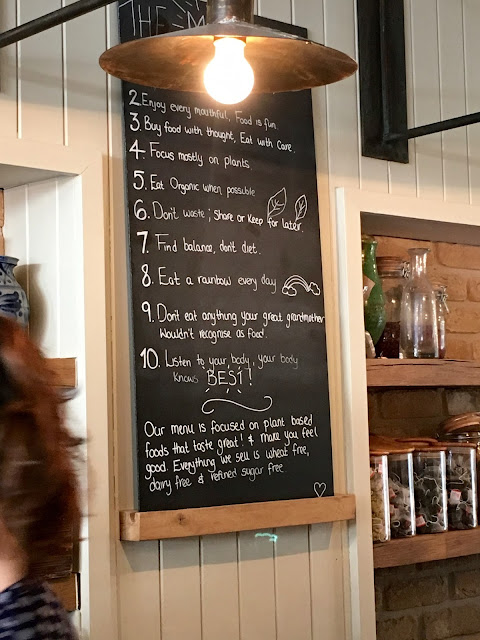 THE
2. Enjoy every mouthful, Food is fun.
3. Buy food with thought, Eat with Care.
4. Focus mostly on plants.
5. Eat Organic when possible
6. Don't waste; Share or Keep for later.
7. Find balance, don't diet.
8. Eat a rainbow every day
9. Don't eat anything your great grandmother
wouldn't recognise as food.
10. Listen to your body, your body
knows BEST!
Our menu is focused on plant based
foods that taste great! & make you feel
good. Everything we sell is wheat free,
dairy free & refined sugar free